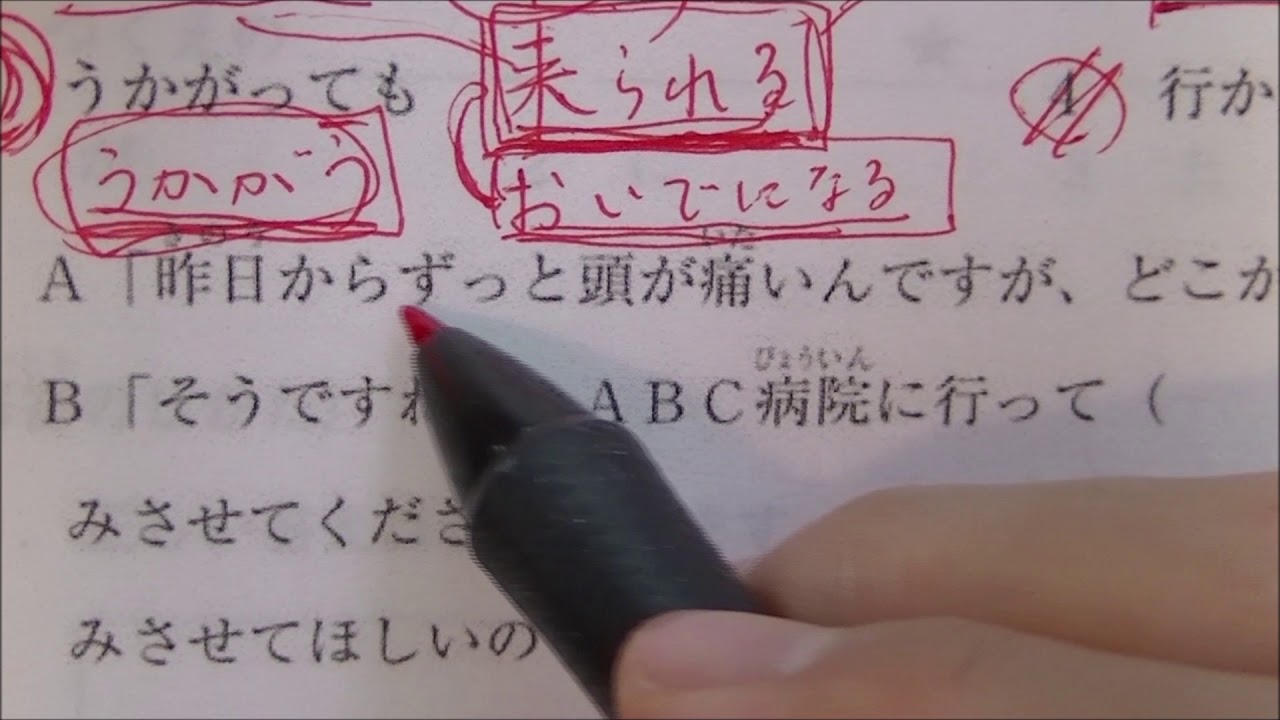 うかがっても
来られる
4 行か
うかがう
おいでになる
A「昨日からずっと頭が痛いんですが、どこか
いた
B「そうですね ABC病院に行って（
びょういん
みさせてくださ
みさせてほしいの